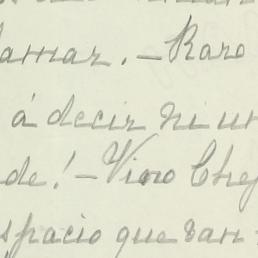 amar. – Raro
á decir ni un
de! – Vino Chej
spacio que van